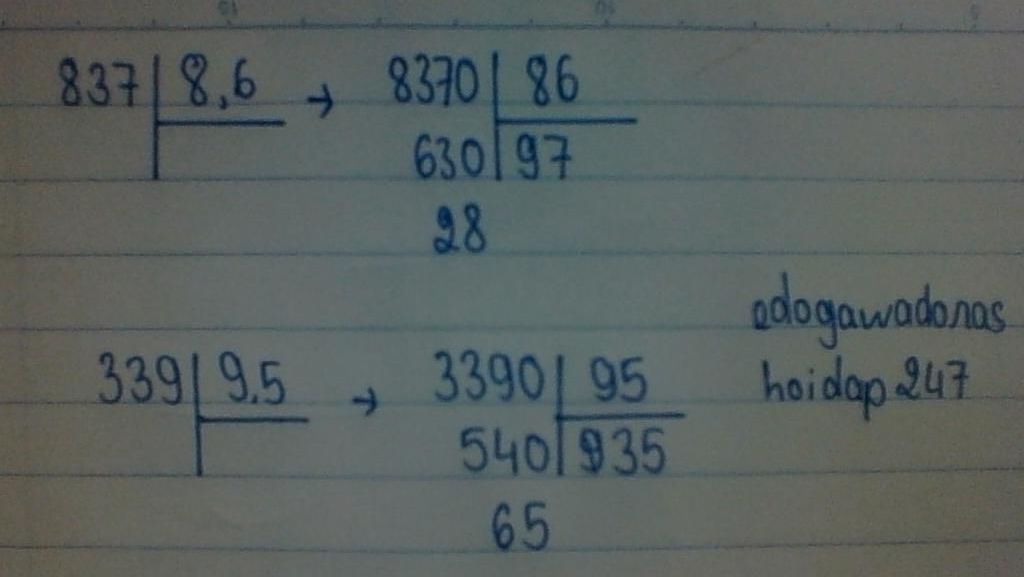 837 8,6 → 8370 86
630 97
28
edogawadonas
hoidap 247
339 9,5 → 3390 95
540 935
65